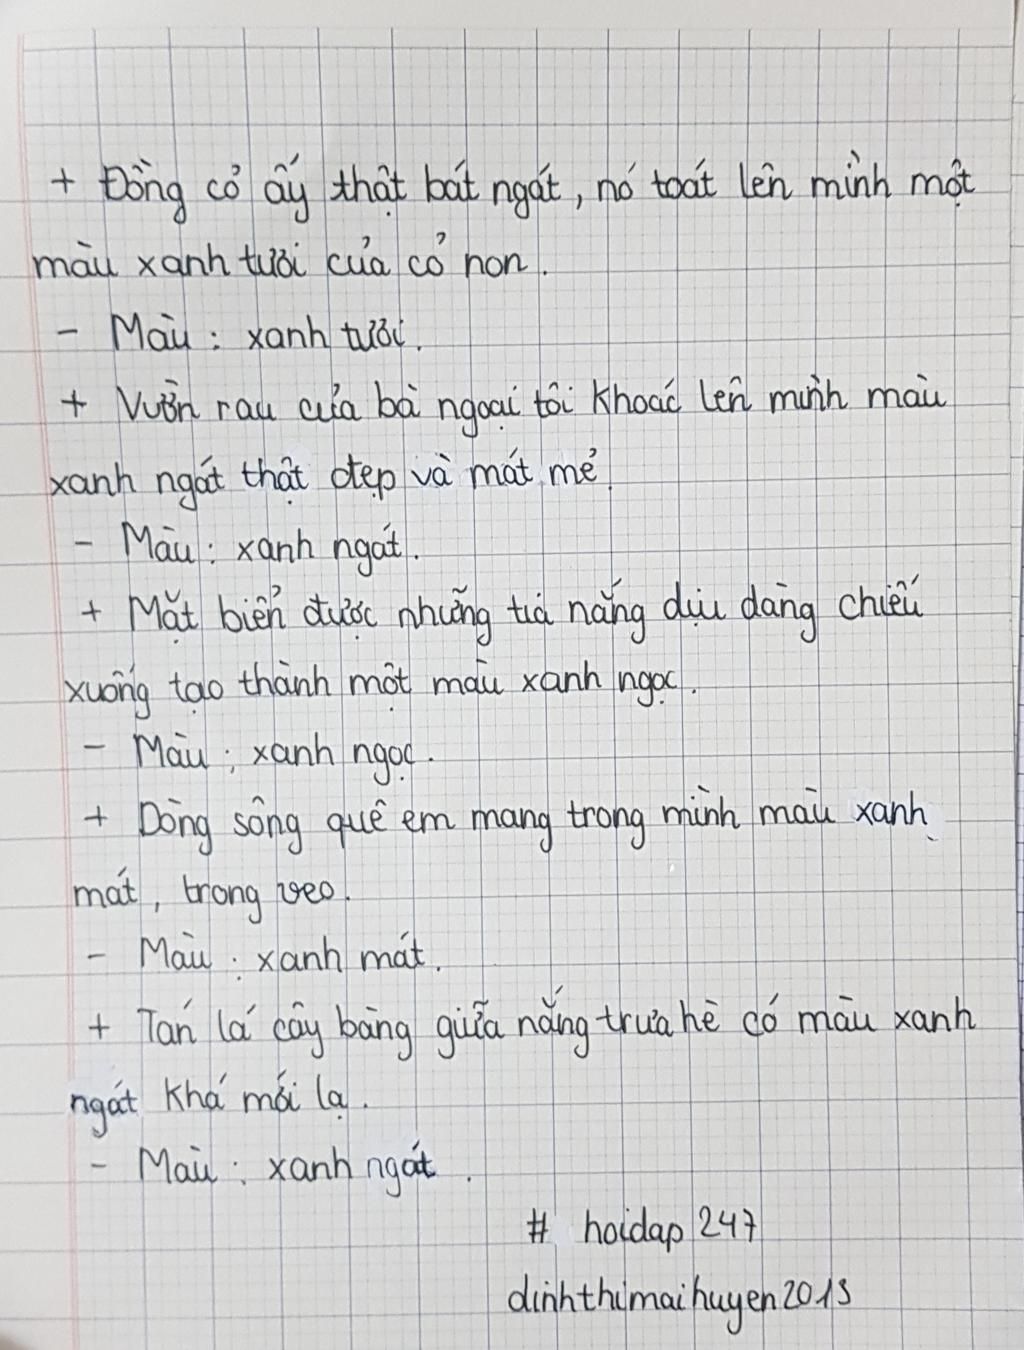 + Đồng cỏ ấy thật bát ngát, nó toát lên mình một
màu xanh tươi của cỏ non.
- Màu : xanh tươi.
+ Vườn rau của bà ngoại tôi khoác lên mình màu
xanh ngát thật đẹp và mát mẻ.
- Màu : xanh ngát.
+ Mặt biển được những tia nắng dịu dàng chiếu
xuống tạo thành một màu xanh ngọc.
- Màu : xanh ngọc.
+ Dòng sông quê em mang trong mình màu xanh
mát, trong veo.
- Màu : xanh mát.
+ Tán lá cây bàng giữa nắng trưa hè có màu xanh
ngát khá mới lạ.
- Màu : xanh ngát.
# hoidap 247
dinhthimaihuyen2013